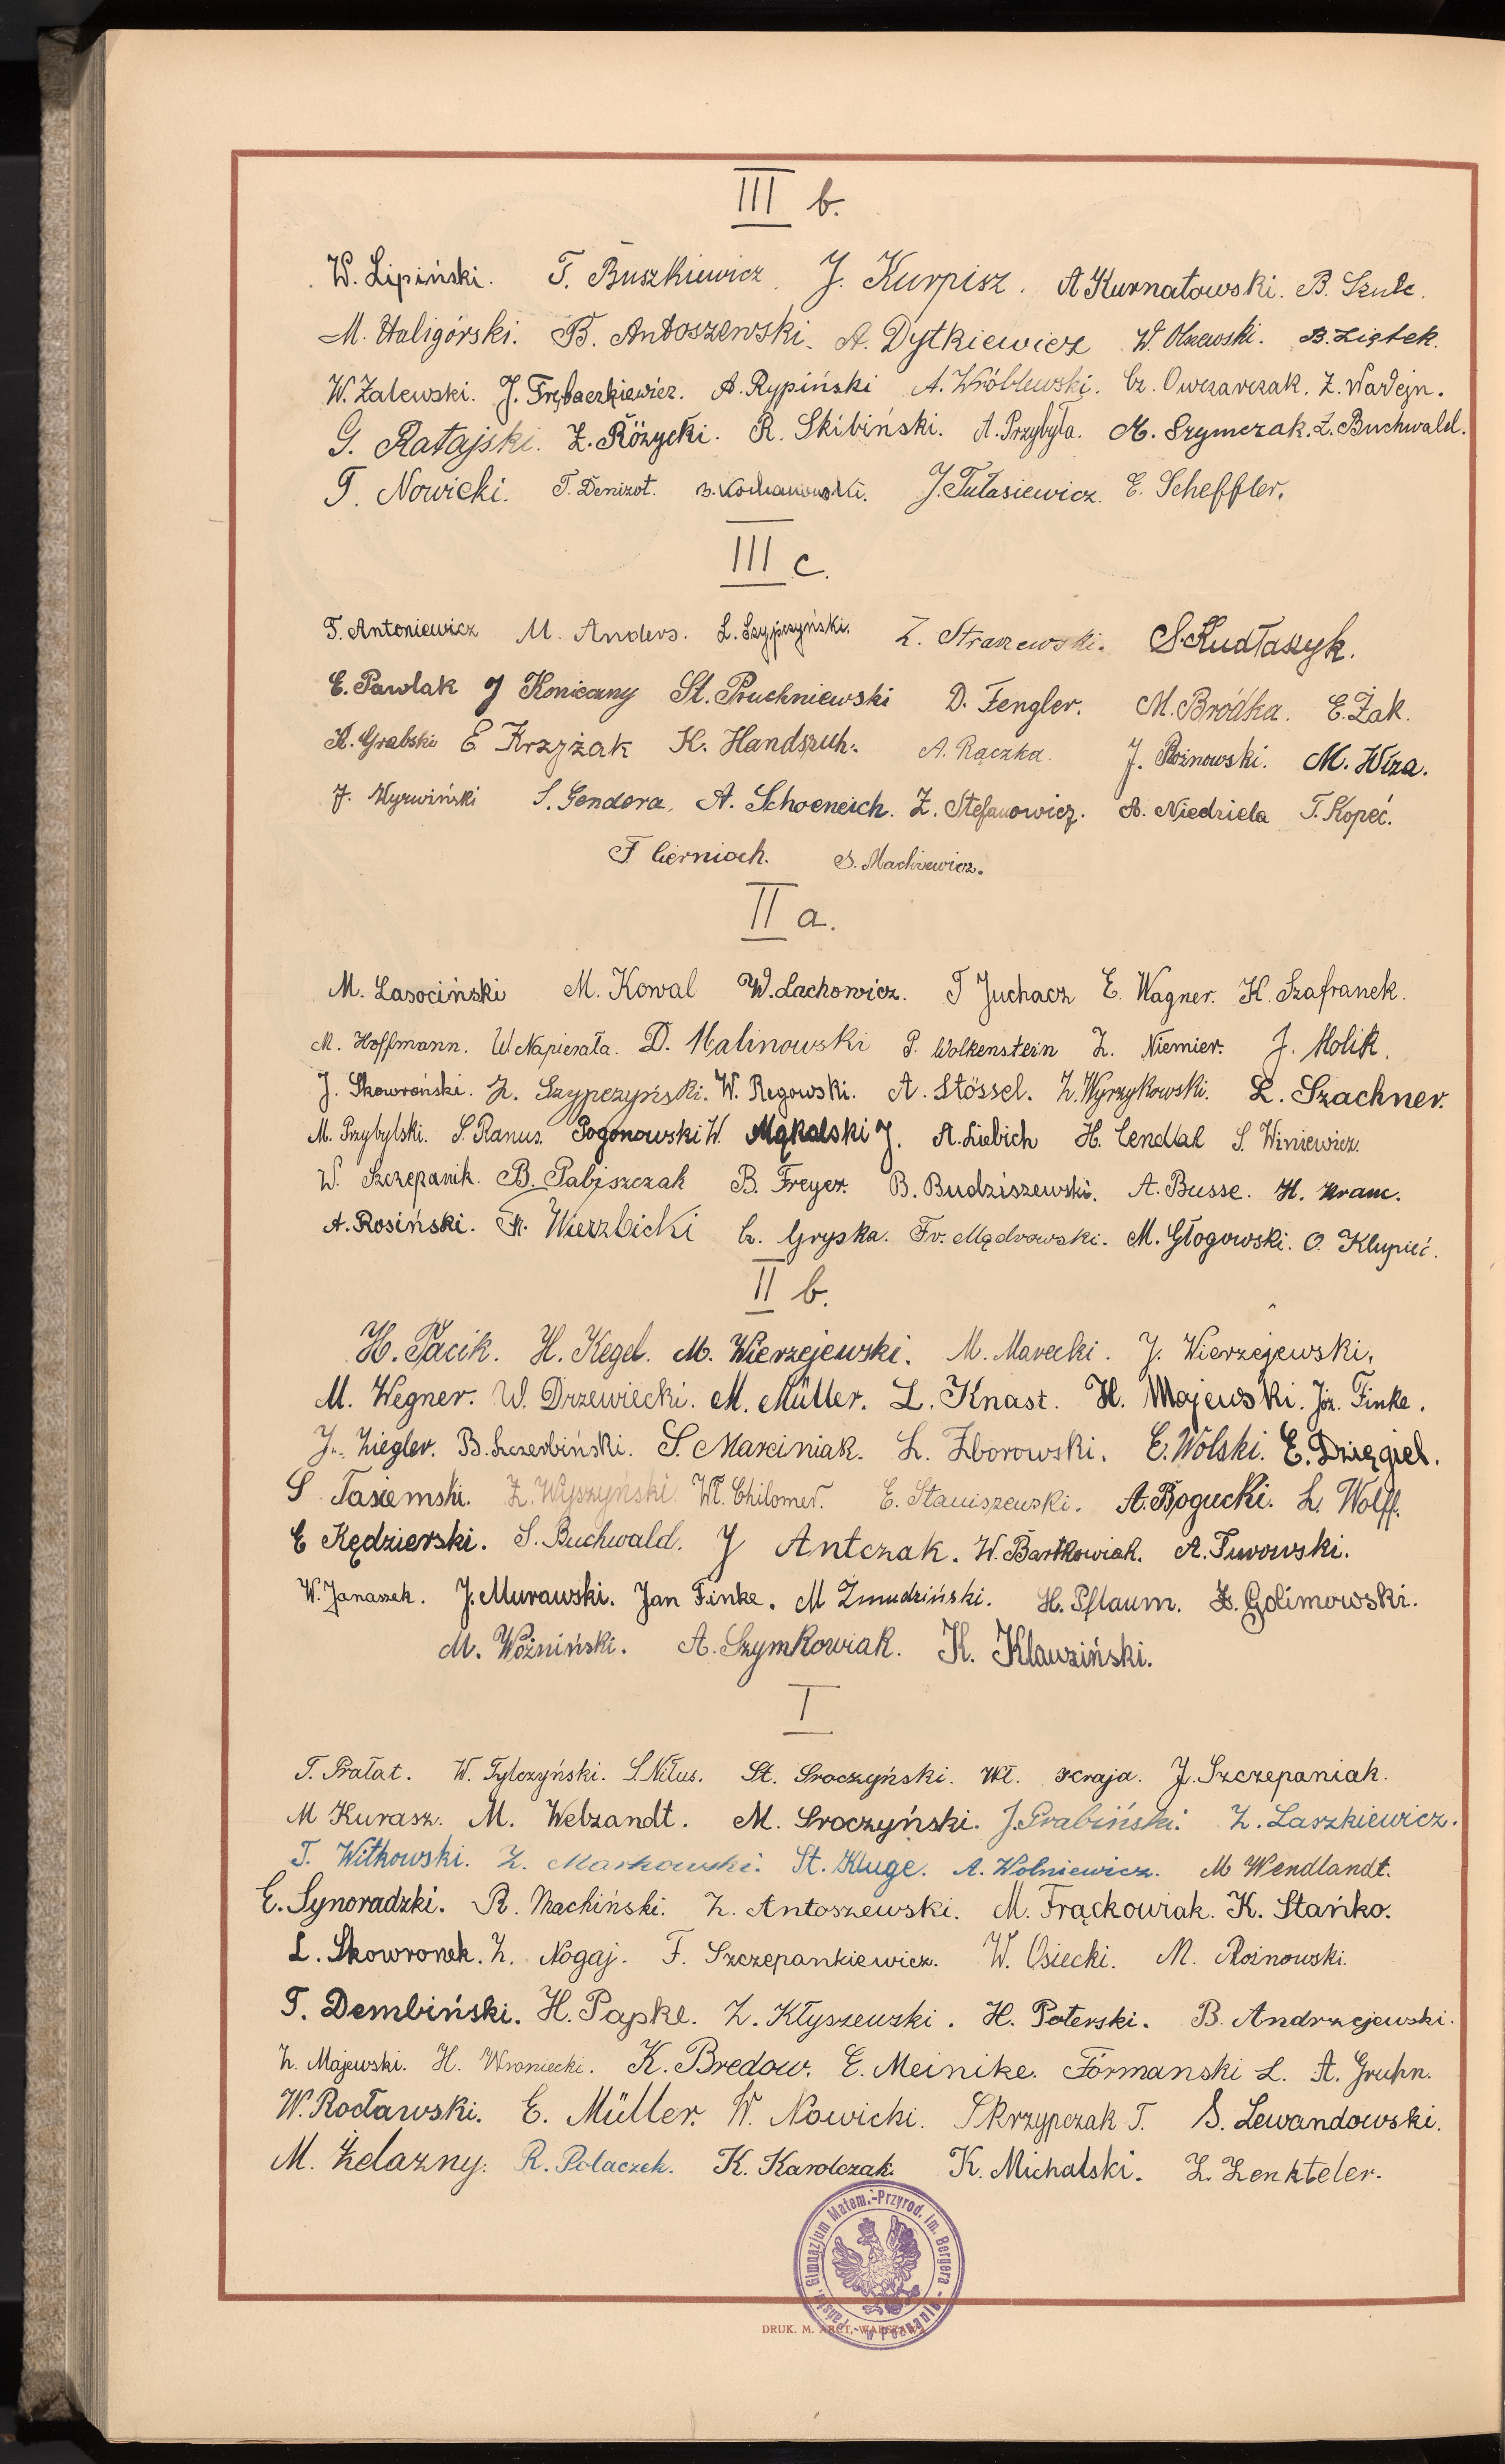 III b.
W. Lipiński. T. Buszkiewicz. J. Kurpisz. A Kurnatowski. B. Szulc.
M. Haligórski. B. Antoszewski. A. Dytkiewicz W. Olszewski. B. Ziętek.
W. Zalewski. J. Frębaczkiewicz. A. Rypiński A. Wróblewski. Cz. Owczarczak. Z. Wardejn.
G. Ratajski. Z. Różycki. R. Skibiński. A. Przybyła. M. Szymczak. Z. Buchwald.
T. Nowicki. T. Denizot. B. Kochanowski. J. Tułasiewicz. E. Scheffler.
III c.
T. Antoniewicz M. Anders. L. Szypczyński. Z. Straszewski. S. Kudłaszyk.
E. Pawlak J Konieczny St. Pruchniewski D. Fengler. M. Bródka. E. Żak.
K. Grabski E Krzyżak K. Handszuh. A. Rączka. J. Rożnowski. M. Wiza.
J. Wyrwiński S. Gendera. A. Schoeneich. Z. Stefanowicz. A. Niedziela T. Kopeć.
F Cierniach. S. Machcewicz.
II a.
M. Lasociński M. Kowal W. Lachowicz. T Juchacz E. Wagner. H. Szafranek.
M. Hoffmann. W Napierała. D. Malinowski P. Wolkenstein Z. Niemier. J. Molik.
J. Skowroński. Z. Szypczyński. W. Regowski. A. Stössel. Z. Wyrzykowski. L. Szachner.
M. Przybylski. S. Ranus. Pogonowski W. Mąkalski J. A. Liebich H. Cendlak S. Winiewicz.
W. Szczepanik. B. Pabiszczak B. Freyer. B. Budziszewski. A. Busse. H. Kranc.
A. Rosiński. Fr. Wierzbicki Cz. Gryska. Fr. Mądrowski. M. Głogowski. O. Klupieć.
II b.
H. Pacik. H. Kegel. M. Wierzejewski. M. Marecki. J. Wierzejewski.
M. Wegner. W. Drzewiecki. M. Müller. L. Knast. H. Majewski. Józ. Finke.
J. Ziegler. B. Szczerbiński. S. Marciniak. L. Zborowski. E. Wolski. E. Dzięgiel.
S Tasiemski. Z. Wyszyński. Wł. Chilomer. E. Staniszewski. A. Bogucki. L. Wolff.
E Kędzierski. S. Buchwald. J Antczak. W. Bartkowiak. A. Turowski.
W. Janaszek. J. Murawski. Jan Finke. M Żmudziński. H. Pflaum. Z. Golimowski.
M. Woźniński. A. Szymkowiak. K. Klauziński.
I
T. Prałat. W. Tylczyński. S. Nitus. St. Sroczyński. Wł. Kraja. J. Szczepaniak.
M Kurasz. M. Webzandt. M. Sroczyński. J. Grabiński. Z. Laszkiewicz.
T. Witkowski. Z. Markowski. St. Kluge. A. Wolniewicz. M Wendlandt.
E. Synoradzki. R. Machiński. Z. Antoszewski. M. Frąckowiak. K. Stańko.
L. Skowronek. Z. Nogaj. F. Szczepankiewicz. W. Osiecki. M. Rożnowski.
T. Dembiński. H. Papke. Z. Kłyszewski. H. Poterski. B. Andrzejewski.
Z. Majewski. H. Wroniecki. K. Bredow. E. Meinike. Formanski L. A. Gruhn.
W. Rocławski. E. Müller. W. Nowicki. Skrzypczak T. S. Lewandowski.
M. Żelazny. R. Polaczek. K. Karolczak. K. Michalski. Z. Zenkteler.
Państw. Gimnazjum Matem.-Przyrod. im. Bergera w Poznaniu
DRUK. M. ARCT, WARSZAWA